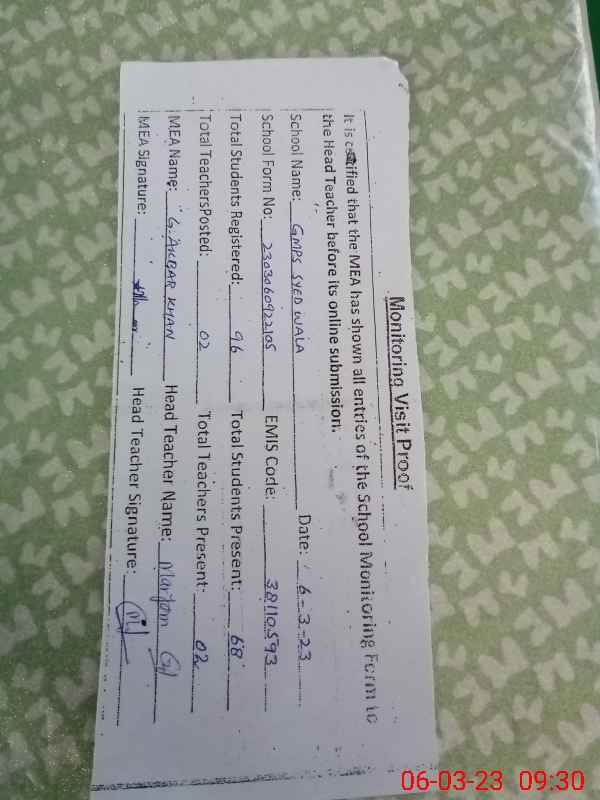 Monitoring Visit Proof
It is certified that the MEA has shown all entries of the School Monitoring Form to
the Head Teacher before its online submission.
School Name: GMPS SYED WALA Date: 6-3-23
School Form No: 2303060922105 EMIS Code: 38110593
Total Students Registered: 96 Total Students Present: 68
Total TeachersPosted: 02 Total Teachers Present: 02
MEA Name: G. AKBAR KHAN Head Teacher Name: Maryam
MEA Signature: Head Teacher Signature:
06-03-23 09:30